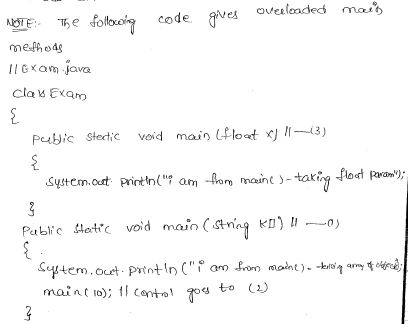 NOTE:- The following code gives overloaded main
methods
// Exam.java
class Exam
{
public static void main (float x) // —(3)
{
System.out println("i am from main( ) - taking float param");
}
Public static void main (string k[]) // —(1)
{
System.out.println ("i am from main( ) - taking array of objects);
main(10); // control goes to (2)
}